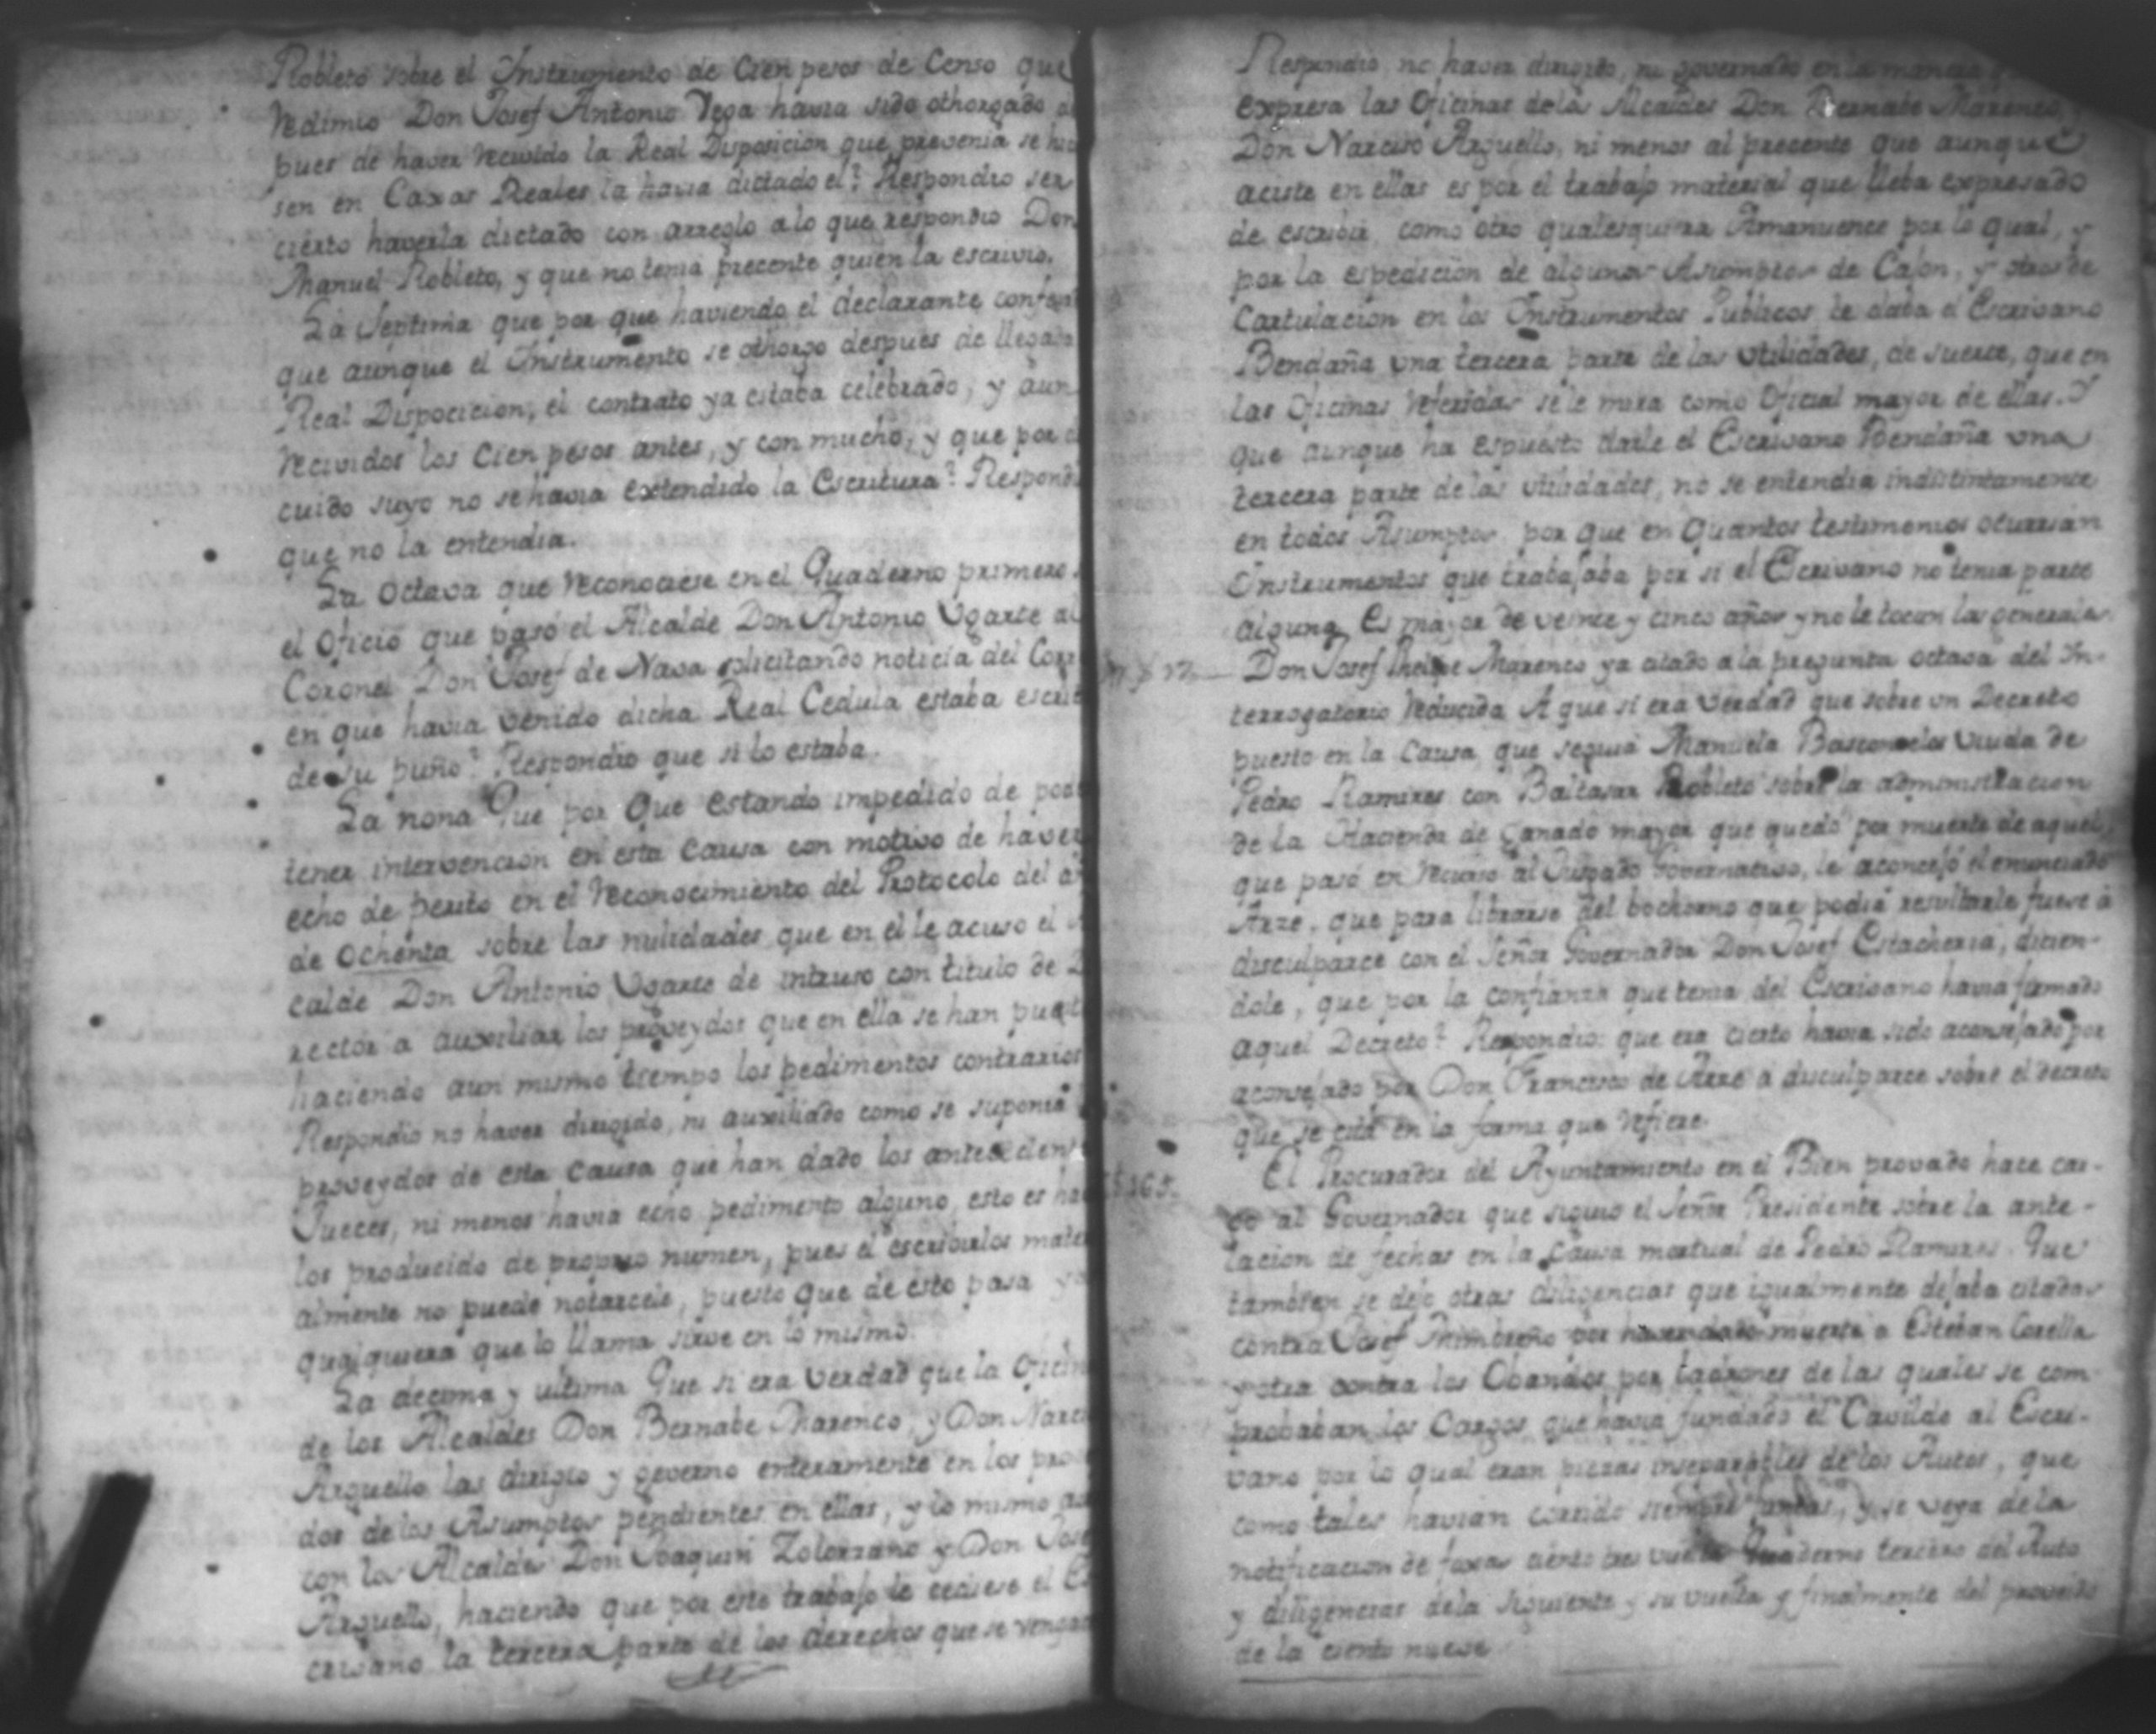 Robleto sobre el Instrumento de Cien pesos de Censo que
redimio Don Josef Antonio Vega havia sido othorgado
pues de haver recivido la Real Disposicion que prevenia se
sen en Caxas Reales la havia dictado el? Respondio ser
cierto haverla dictado con arreglo a lo que respondio Don
Manuel Robleto, y que no tenia precente quien la escrivio.
La Septima que por que haviendo el declarante
que aunque el Instrumento se othorgo despues de llegada
Real Disposicion, el contrato ya estaba celebrado, y aun
recividos los Cien pesos antes, y con mucho, y que por
cuido suyo no se havia extendido la Escritura? Respondi
que no la entendia.
La octava que reconociese en el Quaderno primero
el oficio que pasó el Alcalde Don Antonio Ugarte al
Coronel Don Josef de Nava solicitando noticia del
en que havia venido dicha Real Cedula estaba
de su puño? Respondio que si lo estaba.
La nona Que por que estando impedido de
tener intervencion en esta Causa con motivo de haver
echo de perito en el reconocimiento del Protocolo del
de ochenta sobre las nulidades que en el le acuso el
calde Don Antonio Ugarte de intruso con titulo de
rector a auxiliar los proveydos que en ella se han
haciendo aun mismo tiempo los pedimentos contrarios
Respondio no haver dirigido, ni auxiliado como se suponia
proveydos de esta Causa que han dado los
Jueces, ni menos havia echo pedimento alguno, esto es
los producido de proprio numen, pues el escribirlos
almente no puede notarcele, puesto que de esto pasa
qualquiera que lo llama sirve en lo mismo.
La decima y ultima Que si era verdad que la
de los Alcaldes Don Bernabe Marenco, y Don
Arguello las dirigio y governo enteramente en los
dos de los Asumptos pendientes en ellas, y lo mismo
con los Alcaldes Don Joaquin Zolorzano y Don
Arguello, haciendo que por este trabajo le cediese el
crivano la tercera parte de los derechos que se
Respondio, no haver dirigido, ni governado en la manera
expresa las Oficinas de los Alcaldes Don Bernabe Marenco, y
Don Narciso Arguello, ni menos al precente que aunque
aciste en ellas es por el trabajo material que lleba expresado
de escribir como otro qualesquiera Amanuence por lo qual, y
por la espedicion de algunos Asumptos de Cajon, y otros de
Cartulacion en los Instrumentos Publicos le daba el Escrivano
Bendaña una tercera parte de las utilidades, de suerte, que en
las Oficinas referidas se le mira como Oficial mayor de ellas. Y
que aunque ha espuesto darle el Escrivano Bendaña una
tercera parte de las utilidades, no se entendia indistintamente
en todos Asumptos por que en quantos testimonios ocurrian
Instrumentos que trabajaba por si el Escrivano no tenia parte
alguna. Es mayor de veinte y cinco años y no le tocan las generales.
Don Josef Phelipe Marenco ya citado a la pregunta octava del In-
terrogatorio reducida A que si era verdad que sobre un Decreto
puesto en la Causa que seguia Manuela Basconselos Viuda de
Pedro Ramires con Baltasar Robleto sobre la administracion
de la Hacienda de ganado mayor que quedó por muerte de aquel,
que pasó en recurso al Jusgado Governativo, le aconcejó el enunciado
Arze, que para librarse del bochorno que podia resultarle fuese á
disculparce con el Señor Governador Don Josef Estacheria, dicien-
dole, que por la confianza que tenia del Escrivano havia firmado
aquel Decreto? Respondio: que era cierto havia sido aconsejado por
aconsejado por Don Francisco de Arze a disculparce sobre el decreto
que se cita en la forma que refiere.
El Procurador del Ayuntamiento en el Bien provado hace car-
go al Governador que siguio el Señor Presidente sobre la ante-
lacion de fechas en la Causa mortual de Pedro Ramires. Que
tambien se dejó otras diligencias que igualmente dejaba citadas
contra Josef por haver dado muerte a Esteban Corella
y otra contra los Obandos por ladrones de las quales se com
probaban los Cargos que havia fundado el Cavildo al Escri-
vano por lo qual eran piezas inseparables de los Autos, que
como tales havian corrido siempre juntas, y se veya de la
notificacion de foxas ciento tres vuelta Quaderno tercero del Auto
y diligencias de la siguiente y su vuelta y finalmente del proveido
de la ciento nueve